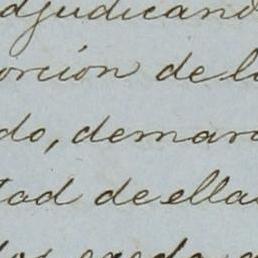 djudicand
orción de l
do, demar
tad de ella